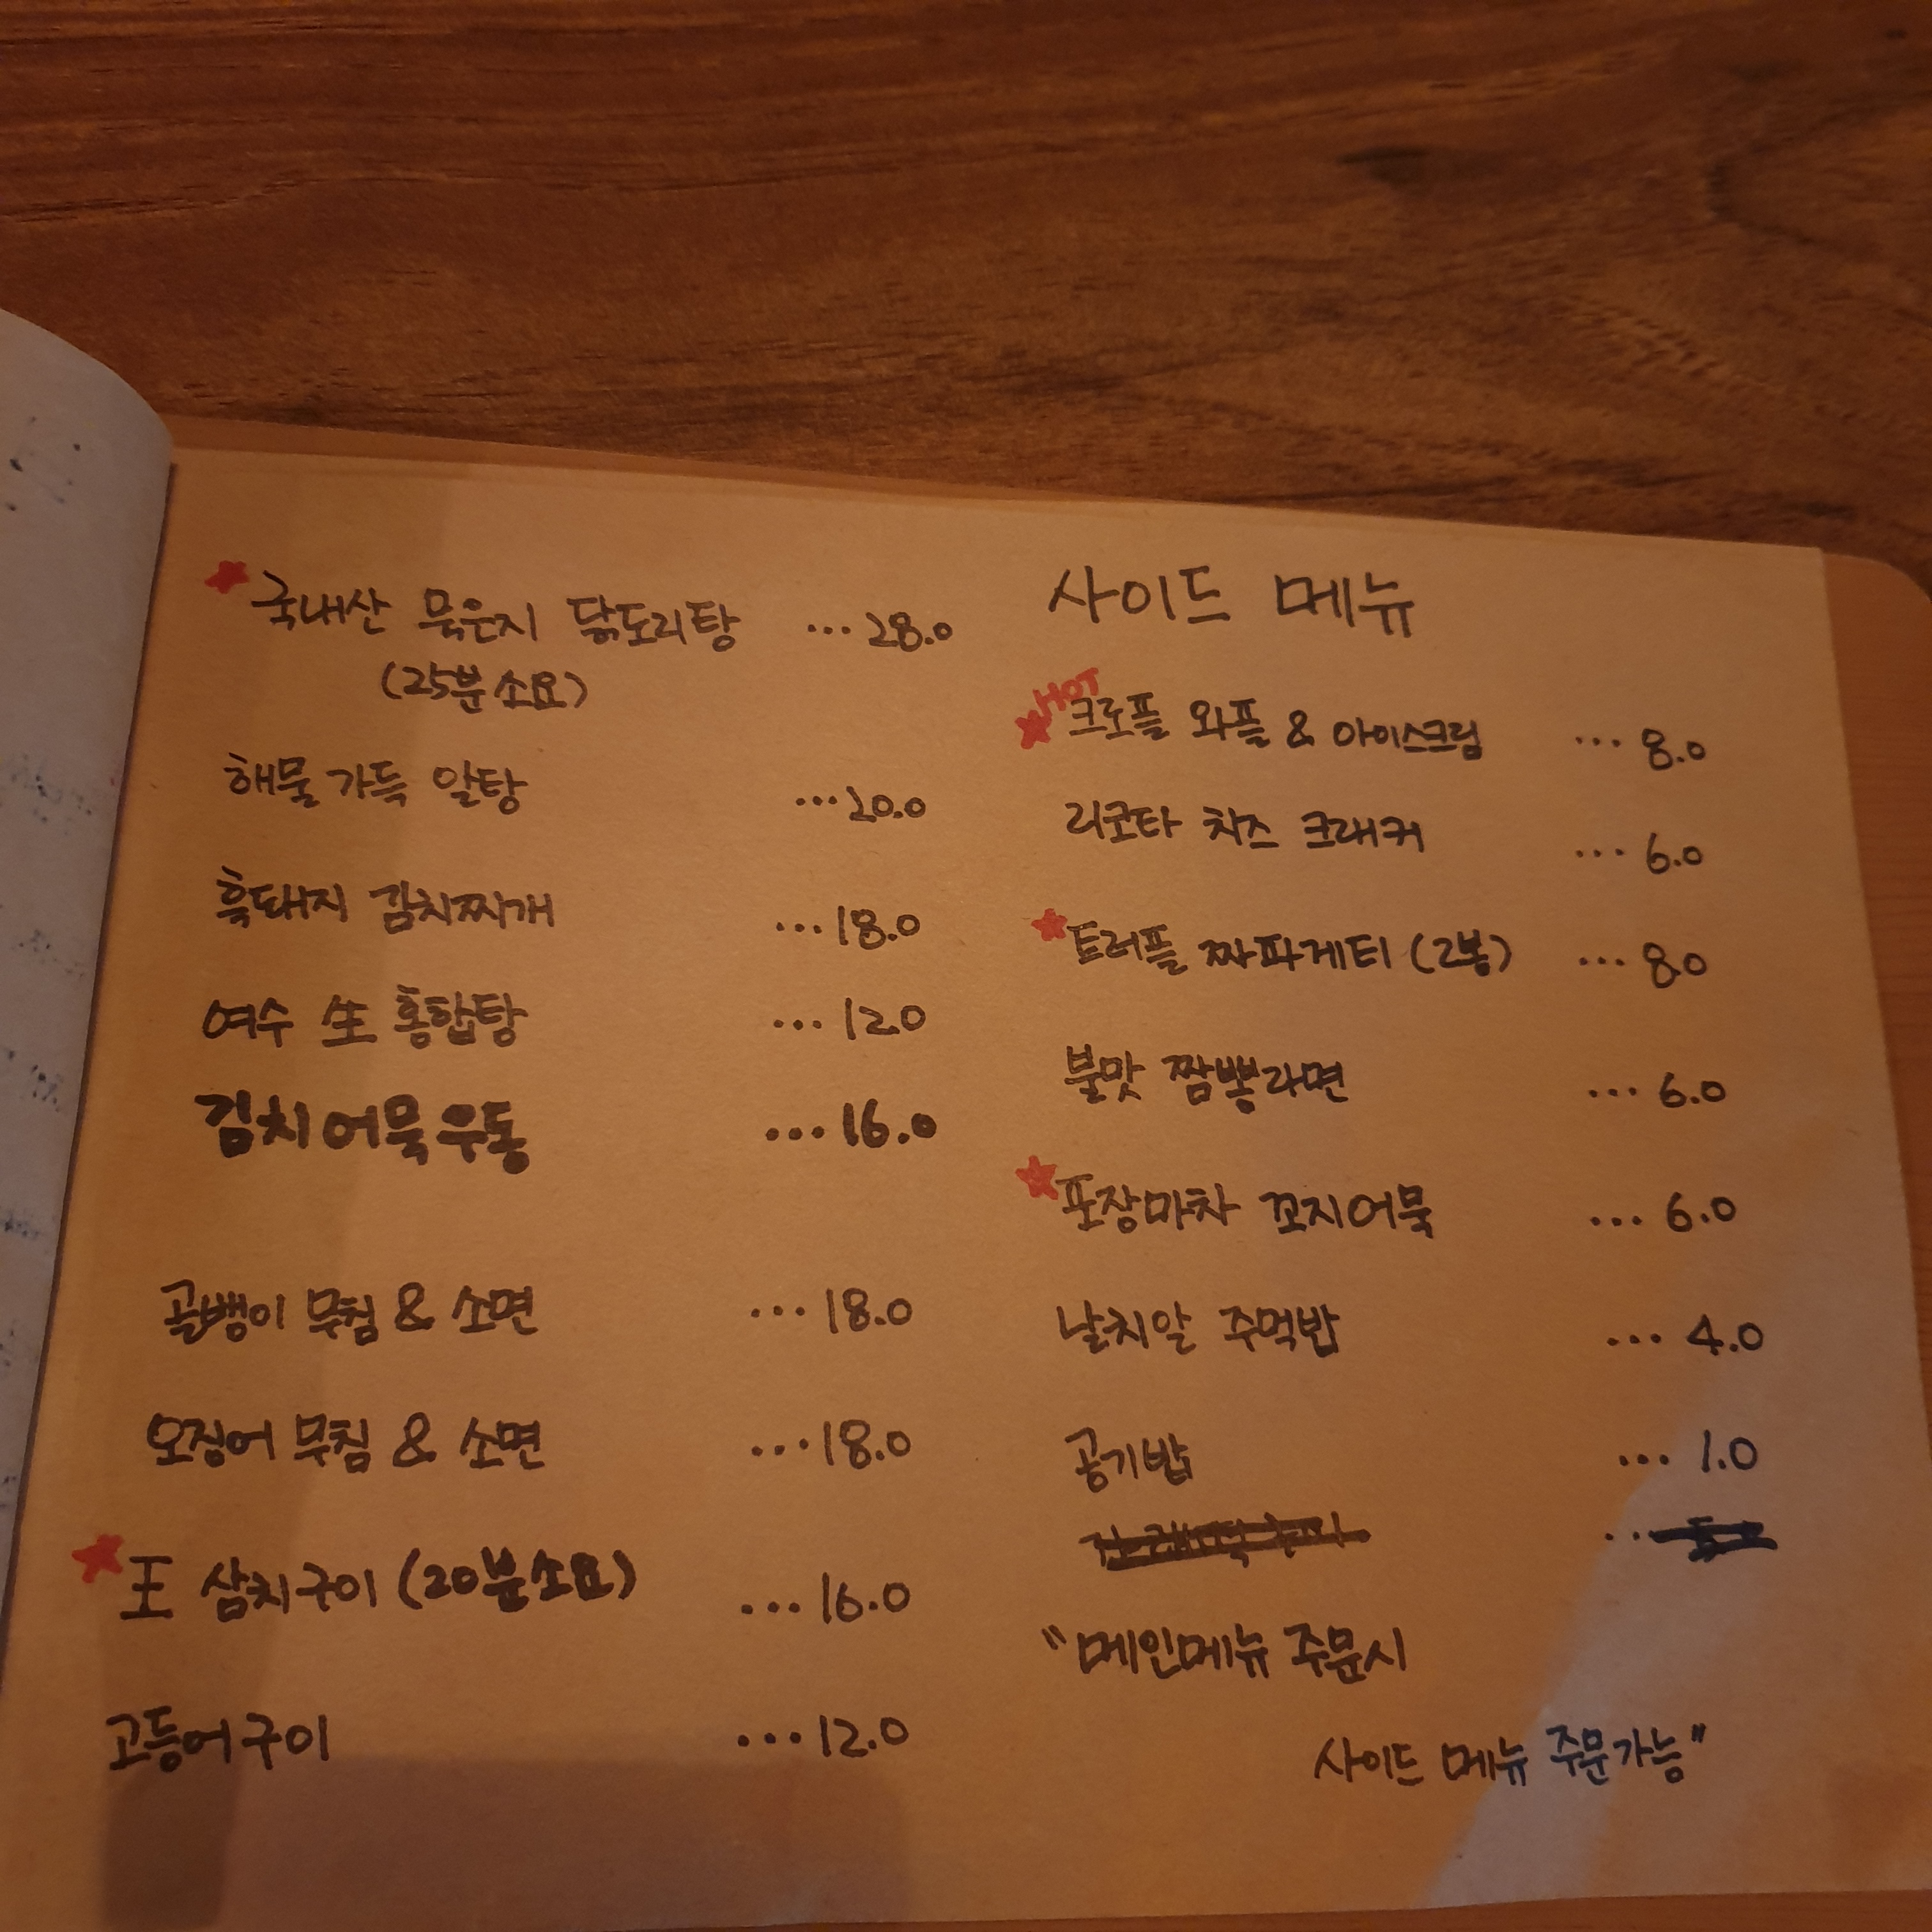 국내산 묵은지 닭도리탕 ... 28.0
(25분 소요)
해물 가득 알탕 ... 20.0
흑돼지 김치찌개 ... 18.0
여수 生 홍합탕 ... 12.0
김치 어묵 우동 ... 16.0
골뱅이 무침 & 소면 ... 18.0
오징어 무침 & 소면 ... 18.0
王 삼치구이 (20분소요) ... 16.0
고등어구이 ... 12.0
사이드 메뉴
HOT
크로플 와플 & 아이스크림 ... 8.0
리코타 치즈 크래커 ... 6.0
트러플 짜파게티 (2봉) ... 8.0
불맛 짬뽕라면 ... 6.0
포장마차 꼬지어묵 ... 6.0
날치알 주먹밥 ... 4.0
공기밥 ... 1.0
"메인메뉴 주문시
사이드 메뉴 주문가능"